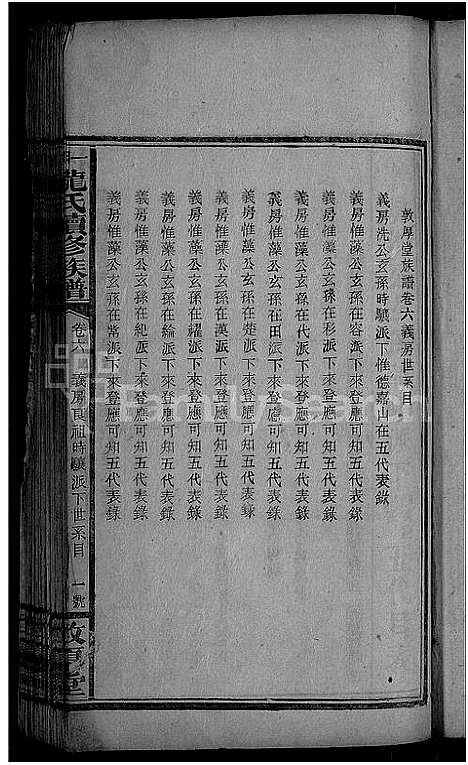 敦厚堂族譜卷六義房世系目
義房洗公玄孫時驤派下惟德嘉山在五代表錄
義房惟藻公玄孫在容派下來登應可知五代表錄
義房惟藻公玄孫在形派下來登應可知五代表錄
義房惟藻公玄孫在代派下來登應可知五代表錄
義房惟藻公玄孫在田派下來登應可知五代表錄
義房惟藻公玄孫在楚派下來登應可知五代表錄
義房惟藻公玄孫在漢派下來登應可知五代表錄
義房惟藻公玄孫在耀派下來登應可知五代表錄
義房惟藻公玄孫在綸派下來登應可知五代表錄
義房惟藻公玄孫在紀派下來登應可知五代表錄
義房惟藻公玄孫在常派下來登應可知五代表錄
龍氏續修族譜
卷六
義房良祖時驤派下世系目
一號
堂
FamilySearch